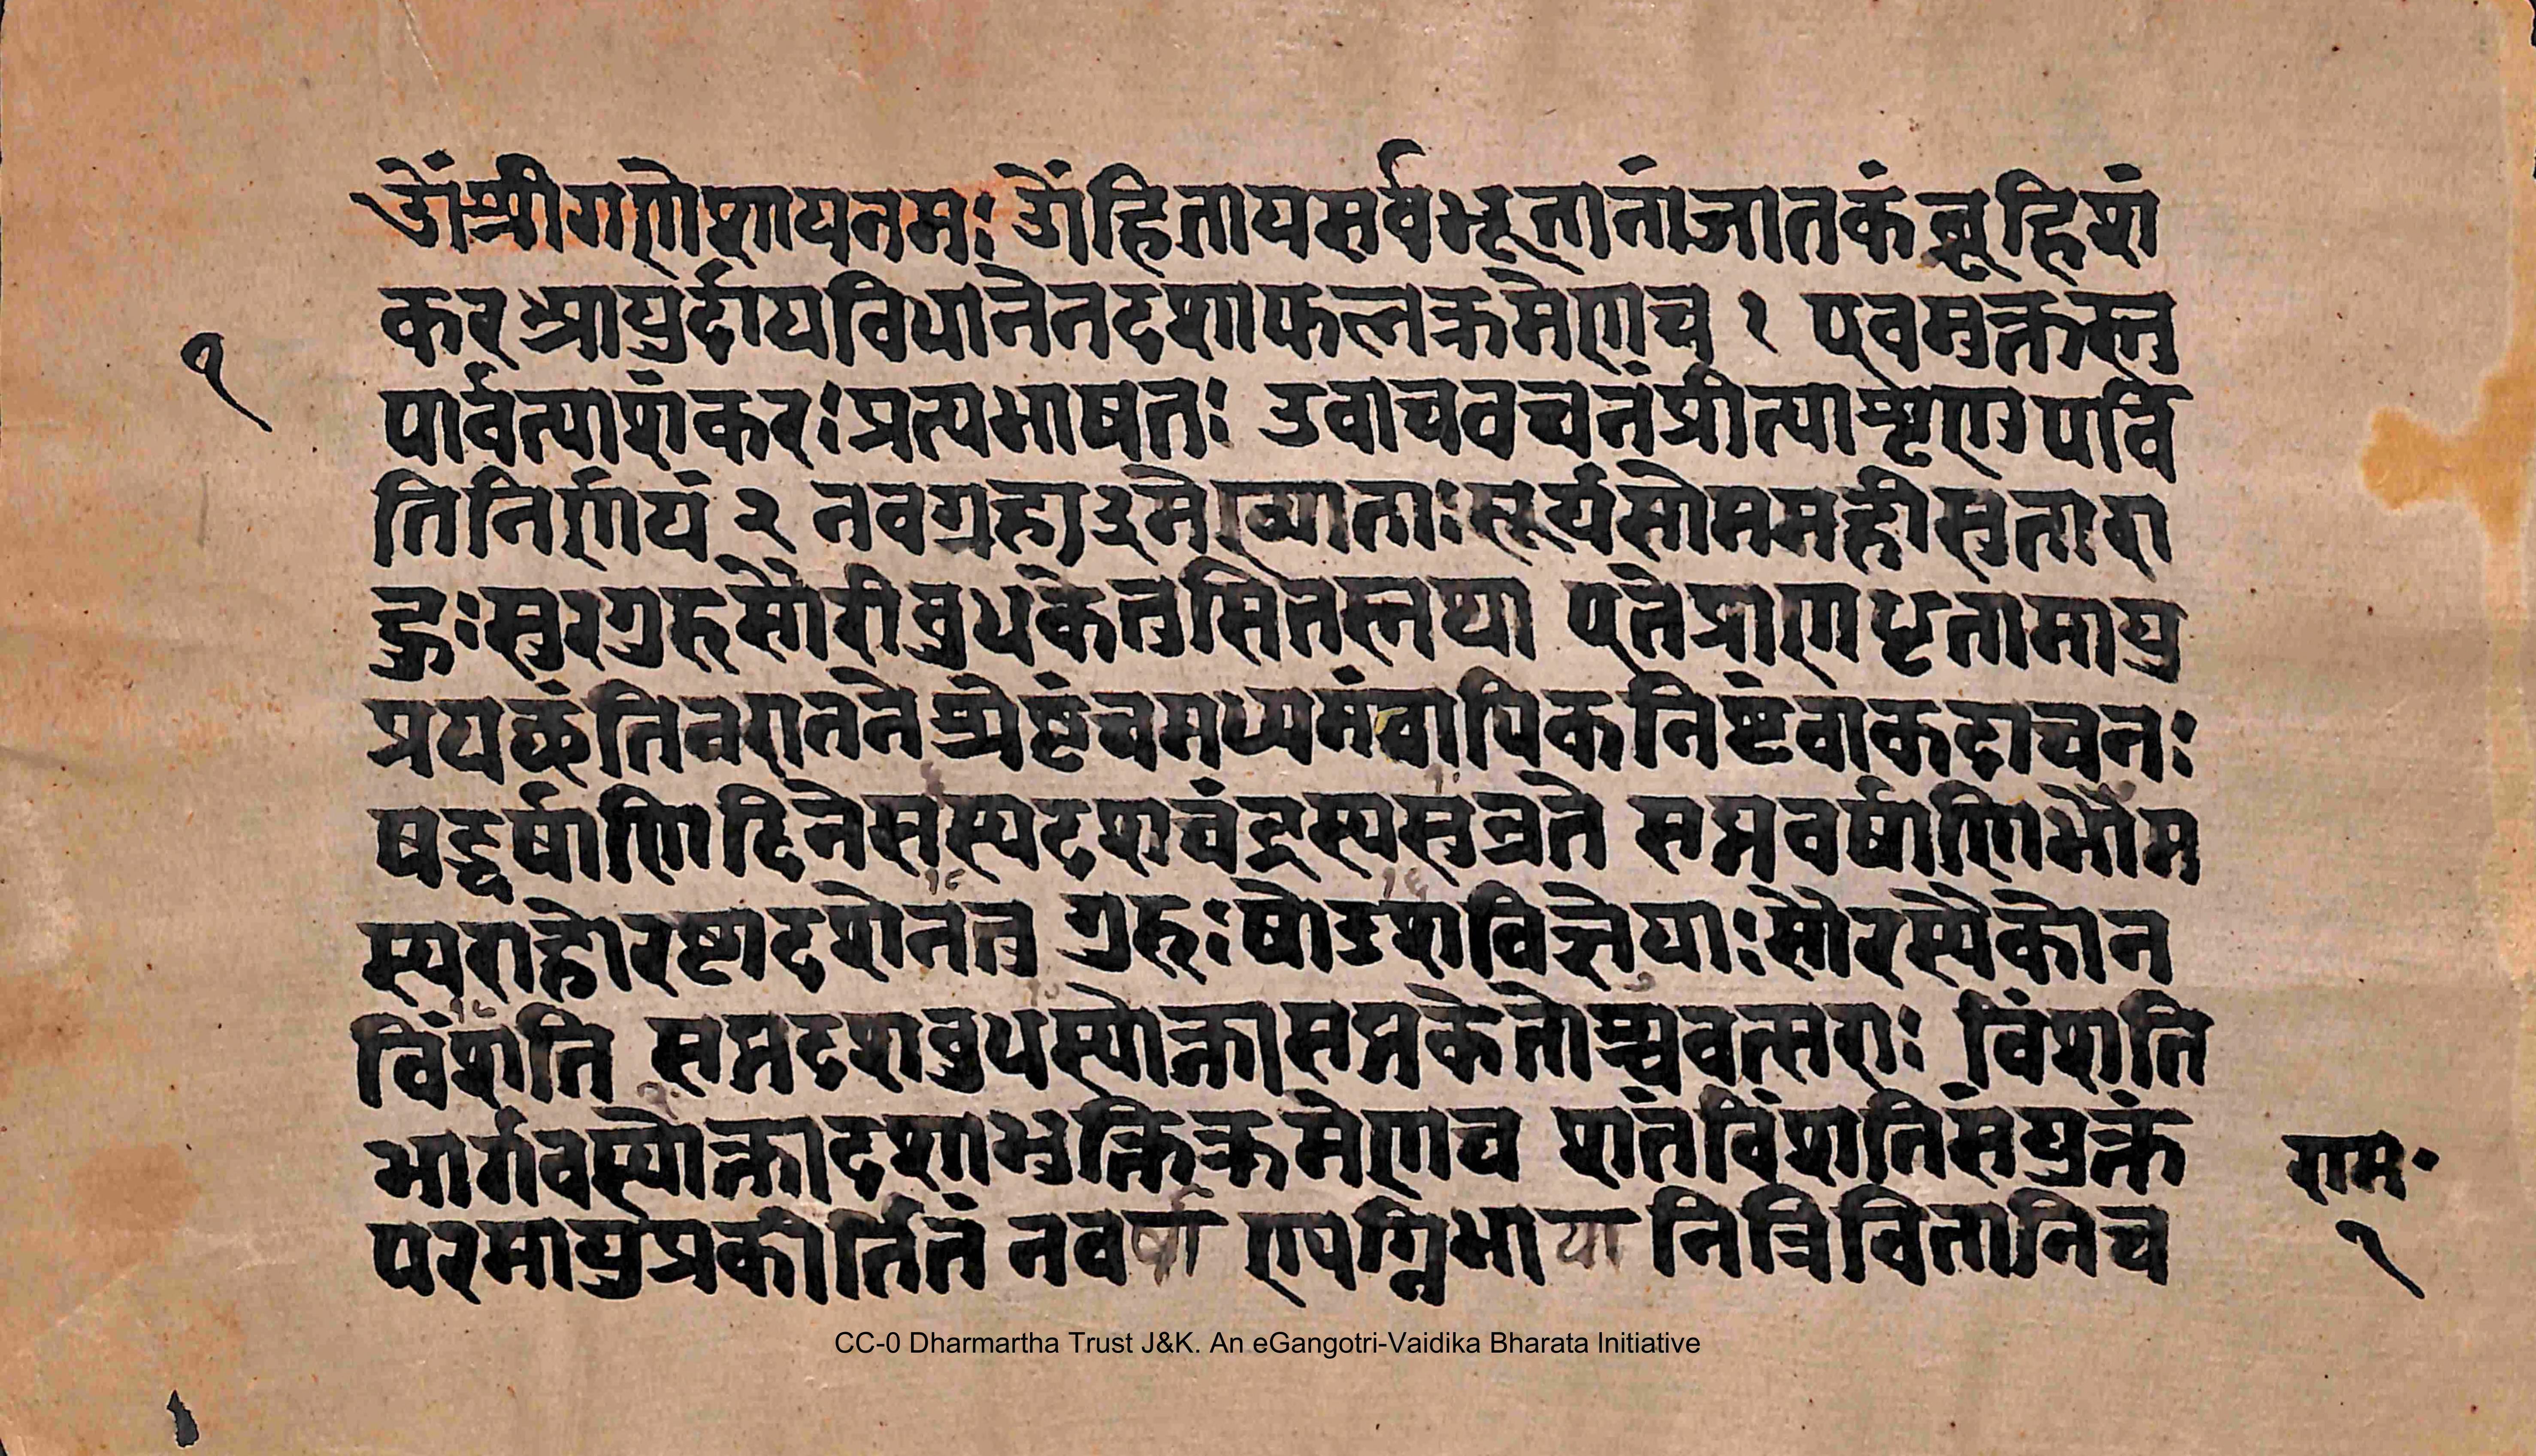 ओं श्रीगणेशायनमः ओं हितायसर्वभूतानांजातकंब्रूहिशं
१
करश्रायुर्दायविधानेनदशाफलक्रमेणच १ एवमुक्तस्तु
पार्वत्याशंकरःप्रत्यभाषतः उवाचवचनंप्रीत्याशृणुपार्व
तिनिर्णयं २ नवग्रहाइमेख्याताःसूर्यसोममहीसुतारा
हुःसुरगुरुसौरीबुधकेतुसितस्तथा एतेप्राणधृतामायु
प्रयछंतिवराननेश्रेष्टंवमध्यमंवापिकनिष्टंवाकदाचनः
षड्वर्षाणिदिनेसस्यदशचंद्रस्यसुव्रते सप्तवर्षाणिभौम
स्यराहोरष्टादशेनतु गुरुःषोडशविज्ञेयाःसौरस्यैकोन
विंशति सप्तदशबुधस्योक्तासप्तकेतोश्चवत्सराः विंशति
भार्गवस्योक्तादशाभुक्तिक्रमेणच शतंविंशतिसंयुक्तं
राम॰
परमायुप्रकीर्तितं नवर्षा ण्यग्निभाया नित्रिवितानिच
१
CC-0 Dharmartha Trust J&K. An eGangotri-Vaidika Bharata Initiative